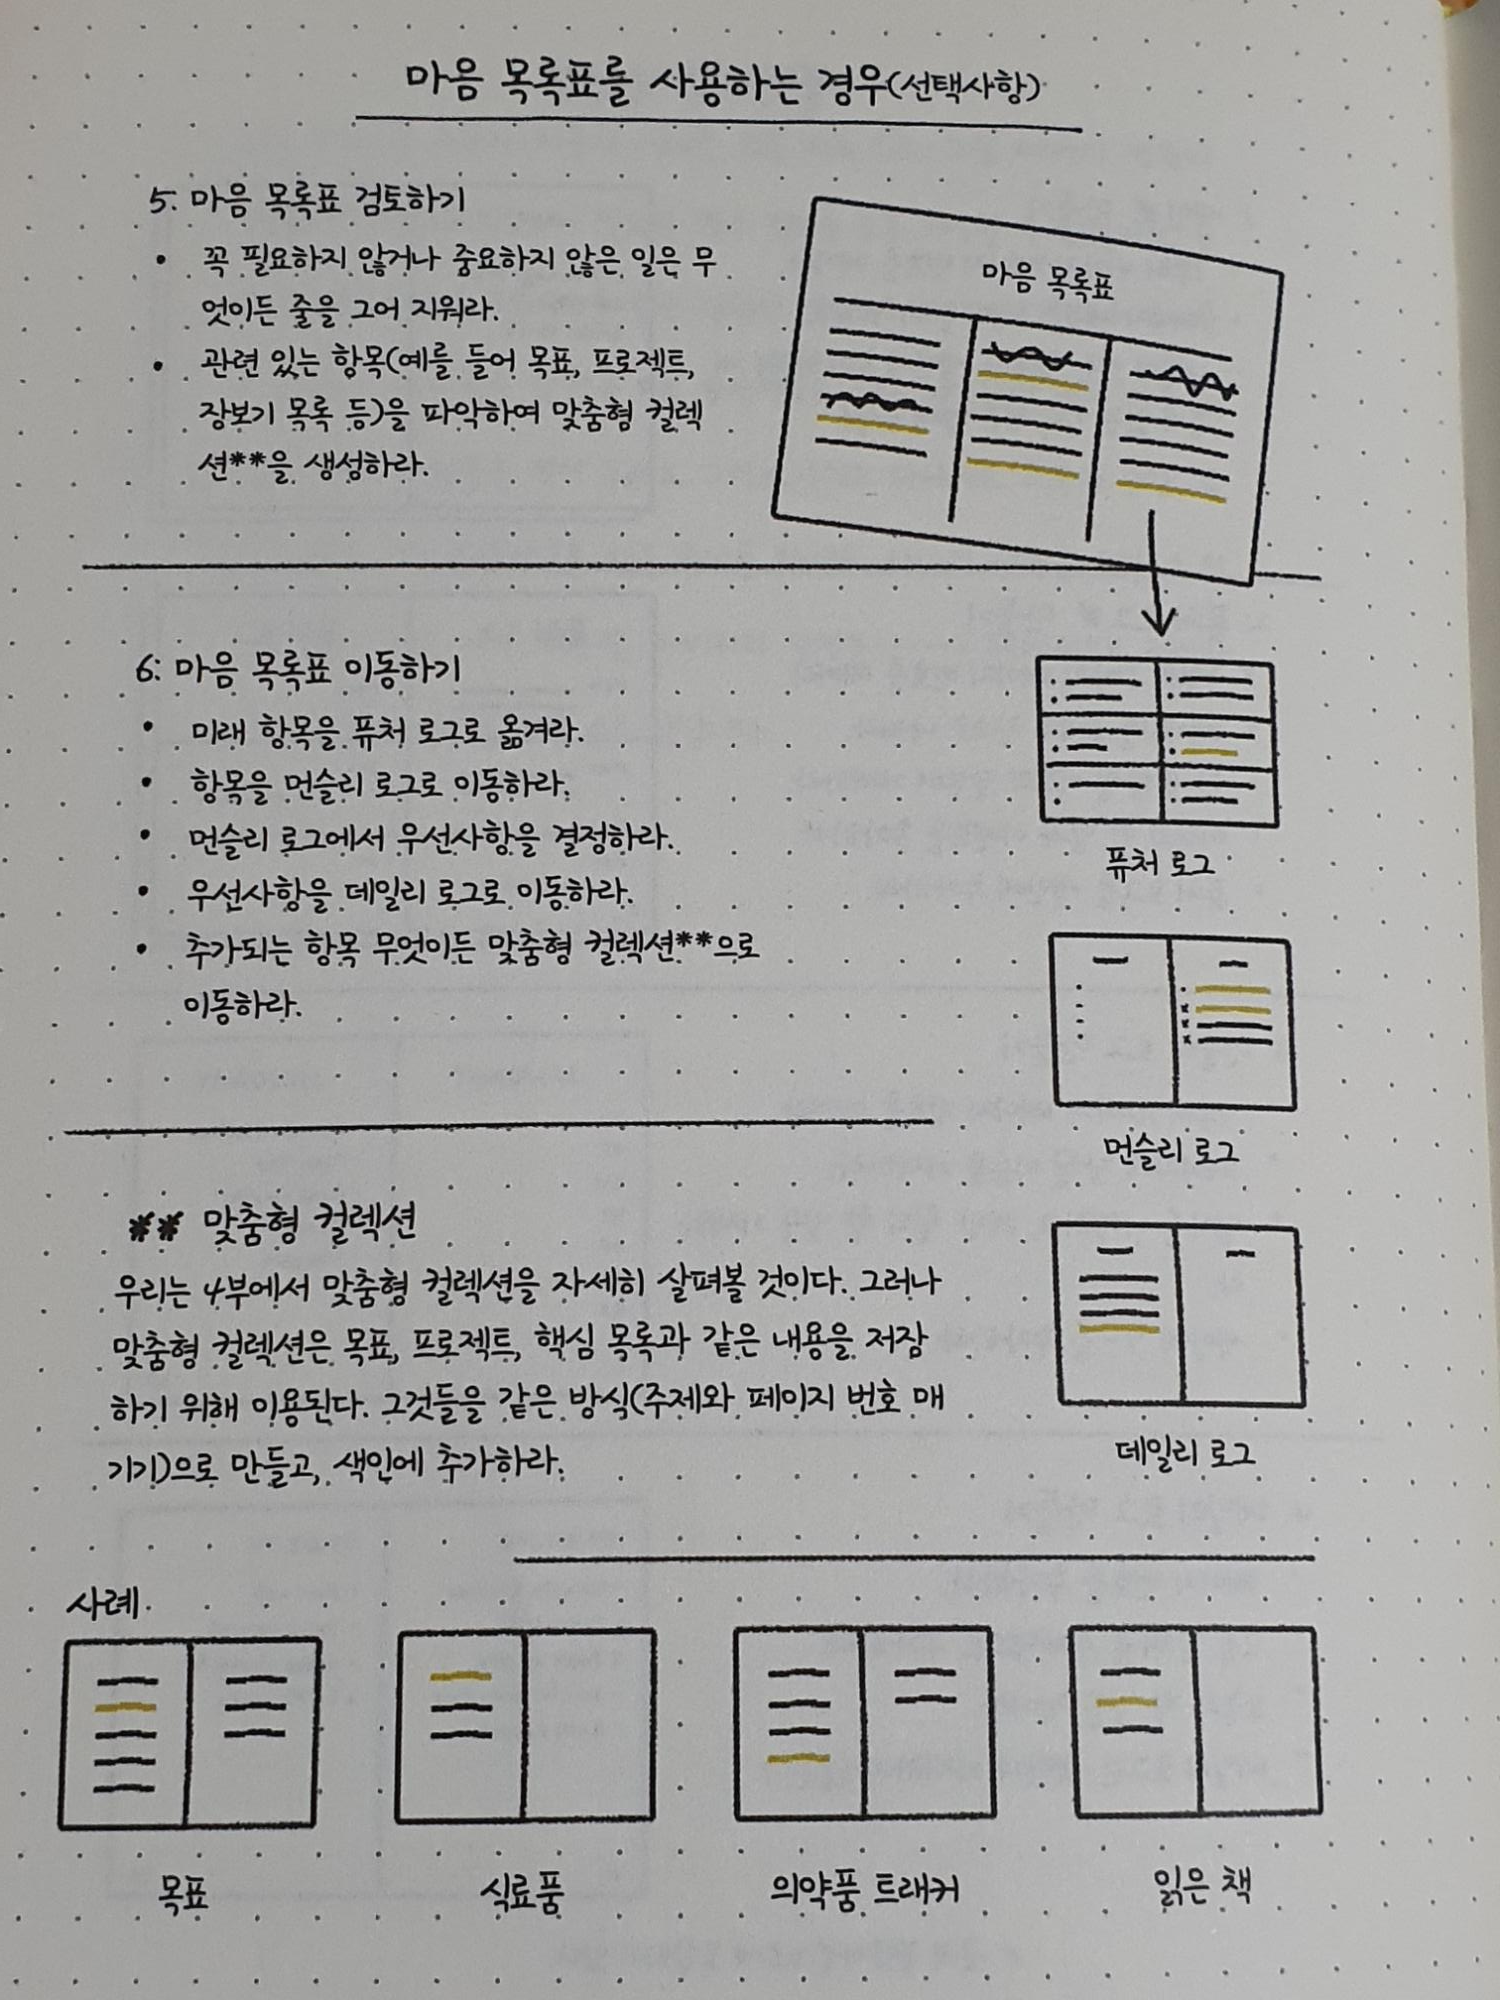 마음 목록표를 사용하는 경우(선택사항)
5. 마음 목록표 검토하기
• 꼭 필요하지 않거나 중요하지 않은 일은 무
엇이든 줄을 그어 지워라.
• 관련 있는 항목(예를 들어 목표, 프로젝트,
장보기 목록 등)을 파악하여 맞춤형 컬렉
션**을 생성하라.
마음 목록표
6. 마음 목록표 이동하기
• 미래 항목을 퓨처 로그로 옮겨라.
• 항목을 먼슬리 로그로 이동하라.
• 먼슬리 로그에서 우선사항을 결정하라.
• 우선사항을 데일리 로그로 이동하라.
• 추가되는 항목 무엇이든 맞춤형 컬렉션**으로
이동하라.
퓨처 로그
먼슬리 로그
** 맞춤형 컬렉션
우리는 4부에서 맞춤형 컬렉션을 자세히 살펴볼 것이다. 그러나
맞춤형 컬렉션은 목표, 프로젝트, 핵심 목록과 같은 내용을 저장
하기 위해 이용된다. 그것들을 같은 방식(주제와 페이지 번호 매
기기)으로 만들고, 색인에 추가하라.
데일리 로그
사례
목표
식료품
의약품 트래커
읽은 책